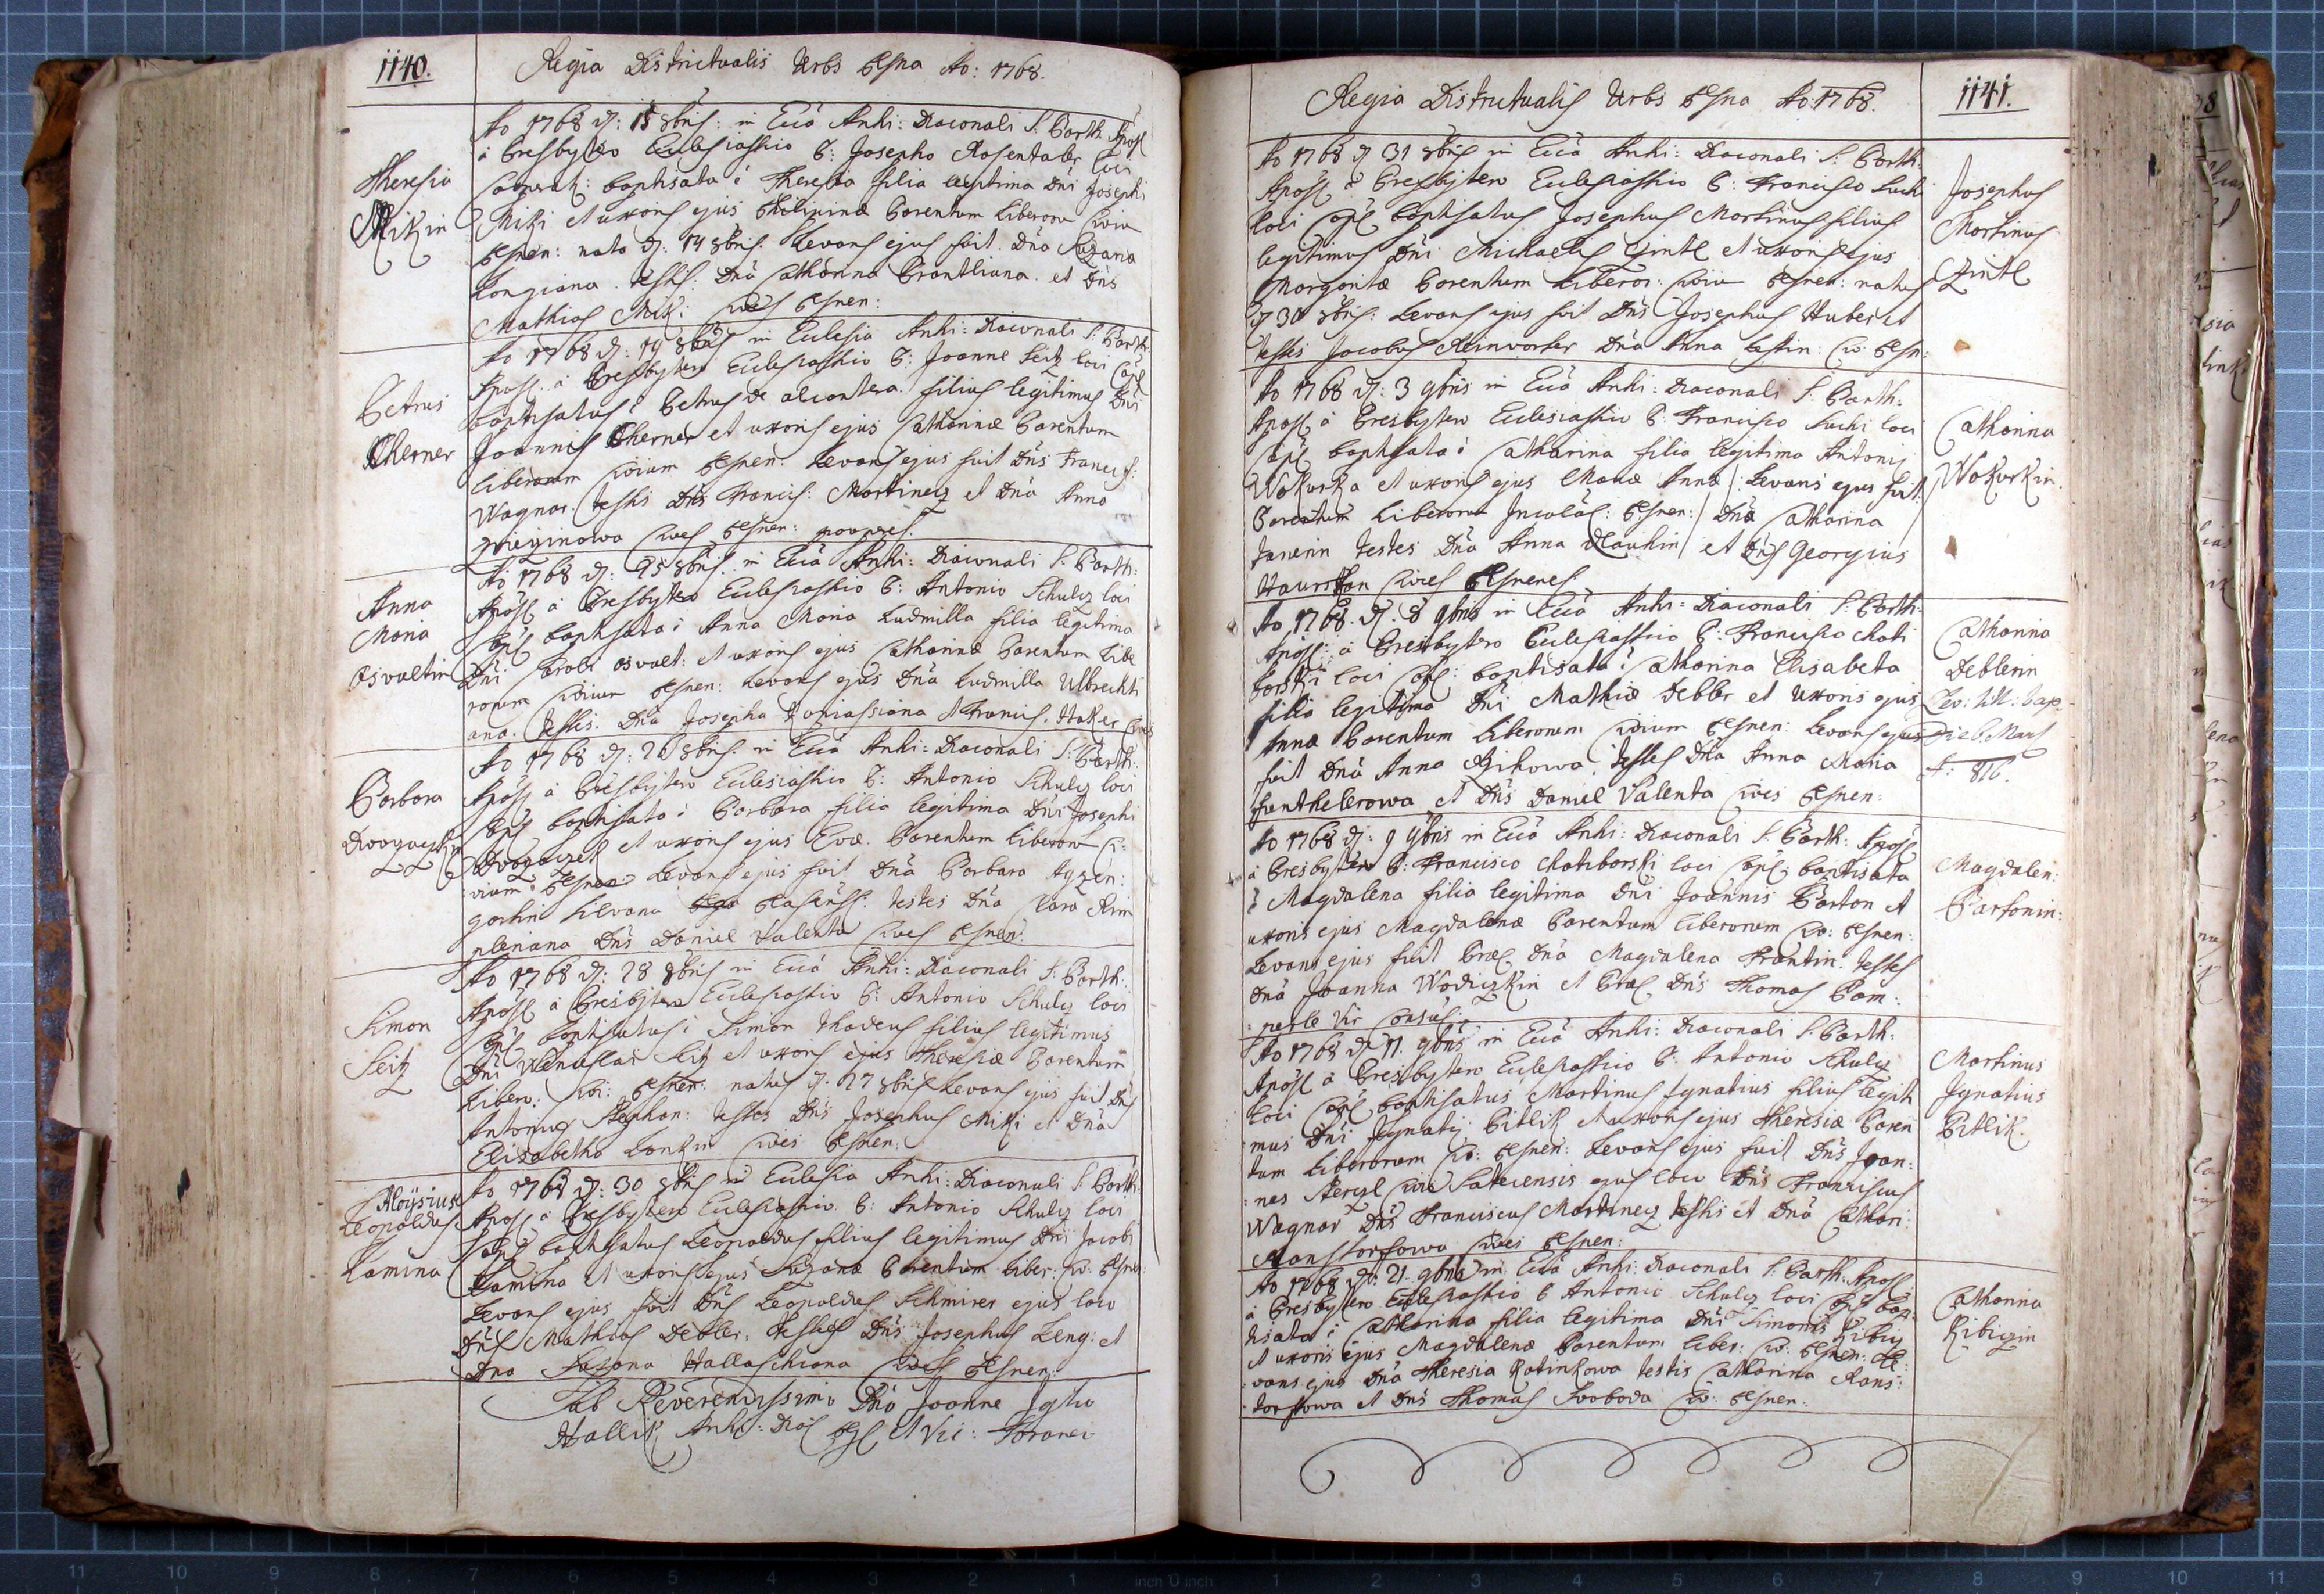 1140.
Regia Districtualis Urbs Plsna Ao: 1768.
Theresia
Mikin
Ao 1768 d: 15 8bris: in Ecca Archi: Diaconali S: Barth: Apos
à Presbytero Ecclesiastico P: Josepho Rosentaler loci
Cooperat: baptisata è Theresia filia legitima Dni Josephi
Miki et uxoris ejus Philipinæ Parentum Liberoru Civiu
Plsnen: nata d: 14 8bris: Levans ejus fuit Dna Suzana
Longiana. testes: Dna Catharina Brantliana. et Dns
Mathias Miki Cives Plsnen:
Petrus
Cherner
Ao 1768 d: 19 8bris in Ecclesia Archi: Diaconali S: Barth:
Apos. à Presbytero Ecclesiastico P: Joanne Seitz loci Capl
baptisatus è Petrus de alcantera filius legitimus Dni
Joannis Cherner et uxoris ejus Catharinæ Parentum
liberorum civium Plsnen: Levans ejus fuit Dns Francis:
Wagner. testis Dns Francis: Martinecz et Dna Anna
Cives Plsnen:
Anna
Maria
Osvaltin
Ao 1768 d: 25 8bris: in Ecca Archi: Diaconali S: Barth:
Apos à Presbytero Ecclesiastico P: Antonio Schulz loci
Capl baptisata è Anna Maria Ludmilla filia legitima
Dni Caroli Osvalt: et uxoris ejus Catharinæ Parentum Libe
rorum Civium Plsnen: Levans ejus Dna Ludmilla Ulbrichti
ana. testis: Dna Josepha et Francis. Haker Cives
Barbora
Ao 1768 d: 26 8bris: in Ecca Archi: Diaconali S: Barth:
Apos à Presbytero Ecclesiastico P: Antonio Schulz loci
Capl baptisata è Barbara filia legitima Dni Josephi
Dvorzaczek et uxoris ejus Evæ. Parentum Liberoru Ci:
vium Plsnen: Levans ejus fuit Dna Barbara
testes Dna Clara
Dns Daniel Valenta Cives Plsnen:
Simon
Seitz
Ao 1768 d: 28 8bris in Ecca Archi: Diaconali S: Barth:
Apos à Presbytero Ecclesiastico P: Antonio Schulz loci
Capl baptisatus è Simon Thadeus filius legitimus
Dni Wenceslai Seitz et uxoris ejus Theresiæ Parentum
Libero: Civi: Plsnen: natus d: 27 8bris Levans ejus fuit Dns
Antonius Stephan: testes Dns Josephus Miki et Dna
Elisabetha Lonkin Cives Plsnen:
Aloysius
Leopoldus
Kamina
Ao 1768 d: 30 8bris in Ecclesia Archi: Diaconali S: Barth:
Apos à Presbytero Ecclesiastico P: Antonio Schulz loci
Capl baptisatus Leopoldus filius legitimus Dni Jacobi
Kamina et uxoris ejus Suzanæ Parentum Liber: Civ: Plsnen:
Levans ejus fuit Dns Leopoldus Schmirer ejus loco
Dns Mathias Debler: testes Dns Josephus Leng: et
Dna Suzana Hallaschiana Cives Plsnen:
Sub Reverendissimo Dno Joanne
Hallik Archi: Diac: Plsl et Vic: Foraneo
Regia Districtualis Urbs Plsna Ao: 1768.
1141.
Ao 1768 d 31 8bris in Ecca Archi: Diaconali S: Barth:
Apos à Presbytero Ecclesiastico P: Francisco Suchi
loci Capl baptisatus Josephus Martinus filius
legitimus Dni Michaelis Czintl et uxoris ejus
Margaritæ Parentum Liberor: Civiu Plsnen: natus
d 30 8bris: Levans ejus fuit Dns Josephus Hubert
testis Jacobus Reinvarter Dna Anna Civ: Plsn:
Josephus
Martinus
Czintl
Ao 1768 d: 3 9bris in Ecca Archi: Diaconali S: Barth:
Apos à Presbytero Ecclesiastico P: Francisco Suchi loci
Capl baptisata è Catharina filia legitima Antonij
Wokurka et uxoris ejus Mariæ Annæ |: Levans ejus fuit:
Parentum Liberorum Incolas: Plsnen: | Dna Catharina
testes Dna Anna | et Dns Georgius
Cives Plsnenes
Catharina
Wokurkin.
Ao 1768. d. 8 9bris in Ecca Archi: Diaconali S: Barth:
Apos: à Presbytero Ecclesiastico P: Francisco Choti
borski loci Capl: baptisata è Catharina Elisabeta
filia legitima Dni Mathiæ Debler et uxoris ejus
Annæ Parentum Liberorum Civium Plsnen: Levans ejus
fuit Dna Anna testes Dna Anna Maria
et Dns Daniel Valenta Cives Plsnen:
Catharina
Deblerin
816.
Ao 1768 d: 9 9bris in Ecca Archi: Diaconali S: Barth: Apos
à Presbytero P: Francisco Chotiborski loci Capl: baptisata
è Magdalena filia legitima Dni Joannis Parton et
uxoris ejus Magdalenæ Parentum liberorum Civ: Plsnen:
Levans ejus fuit Præ Dna Magdalena Frontin: testes
Dna Joanna Wodiczkin et Præ Dns Thomas Pom:
: perle Vir Consul:
Magdalen:
Partonin:
Ao 1768 d 11. 9bris in Ecca Archi: Diaconali S: Barth:
Apos à Presbytero Ecclesiastico P: Antonio Schulz
loci Capl baptisatus Martinus Ignatius filius legiti
mus Dni Ignatij Pitlik et uxoris ejus Theresiæ Paren
tum Liberorum Civ: Plsnen: Levans ejus fuit Dns Joan:
: nes ejus loco Dns Franciscus
Wagner Dns Franciscus Martinecz testis et Dna Cathari:
Cives Plsnen:
Martinus
Ignatius
Pitlik.
Ao 1768 d: 21. 9bris in Ecca Archi: Diaconali S: Barth: Apos
à Presbytero Ecclesiastico P Antonio Schulz loci Capl bap:
tisata è Catharina filia legitima Dni Simonis Kibicz
et uxoris ejus Magdalenæ Parentum liber: Civ: Plsnen: Le:
: vans ejus Dna Theresia Kotinkowa testis Catharina Rans:
: torfowa et Dns Thomas Svoboda Civ: Plsnen:
Catharina
Kibiczin